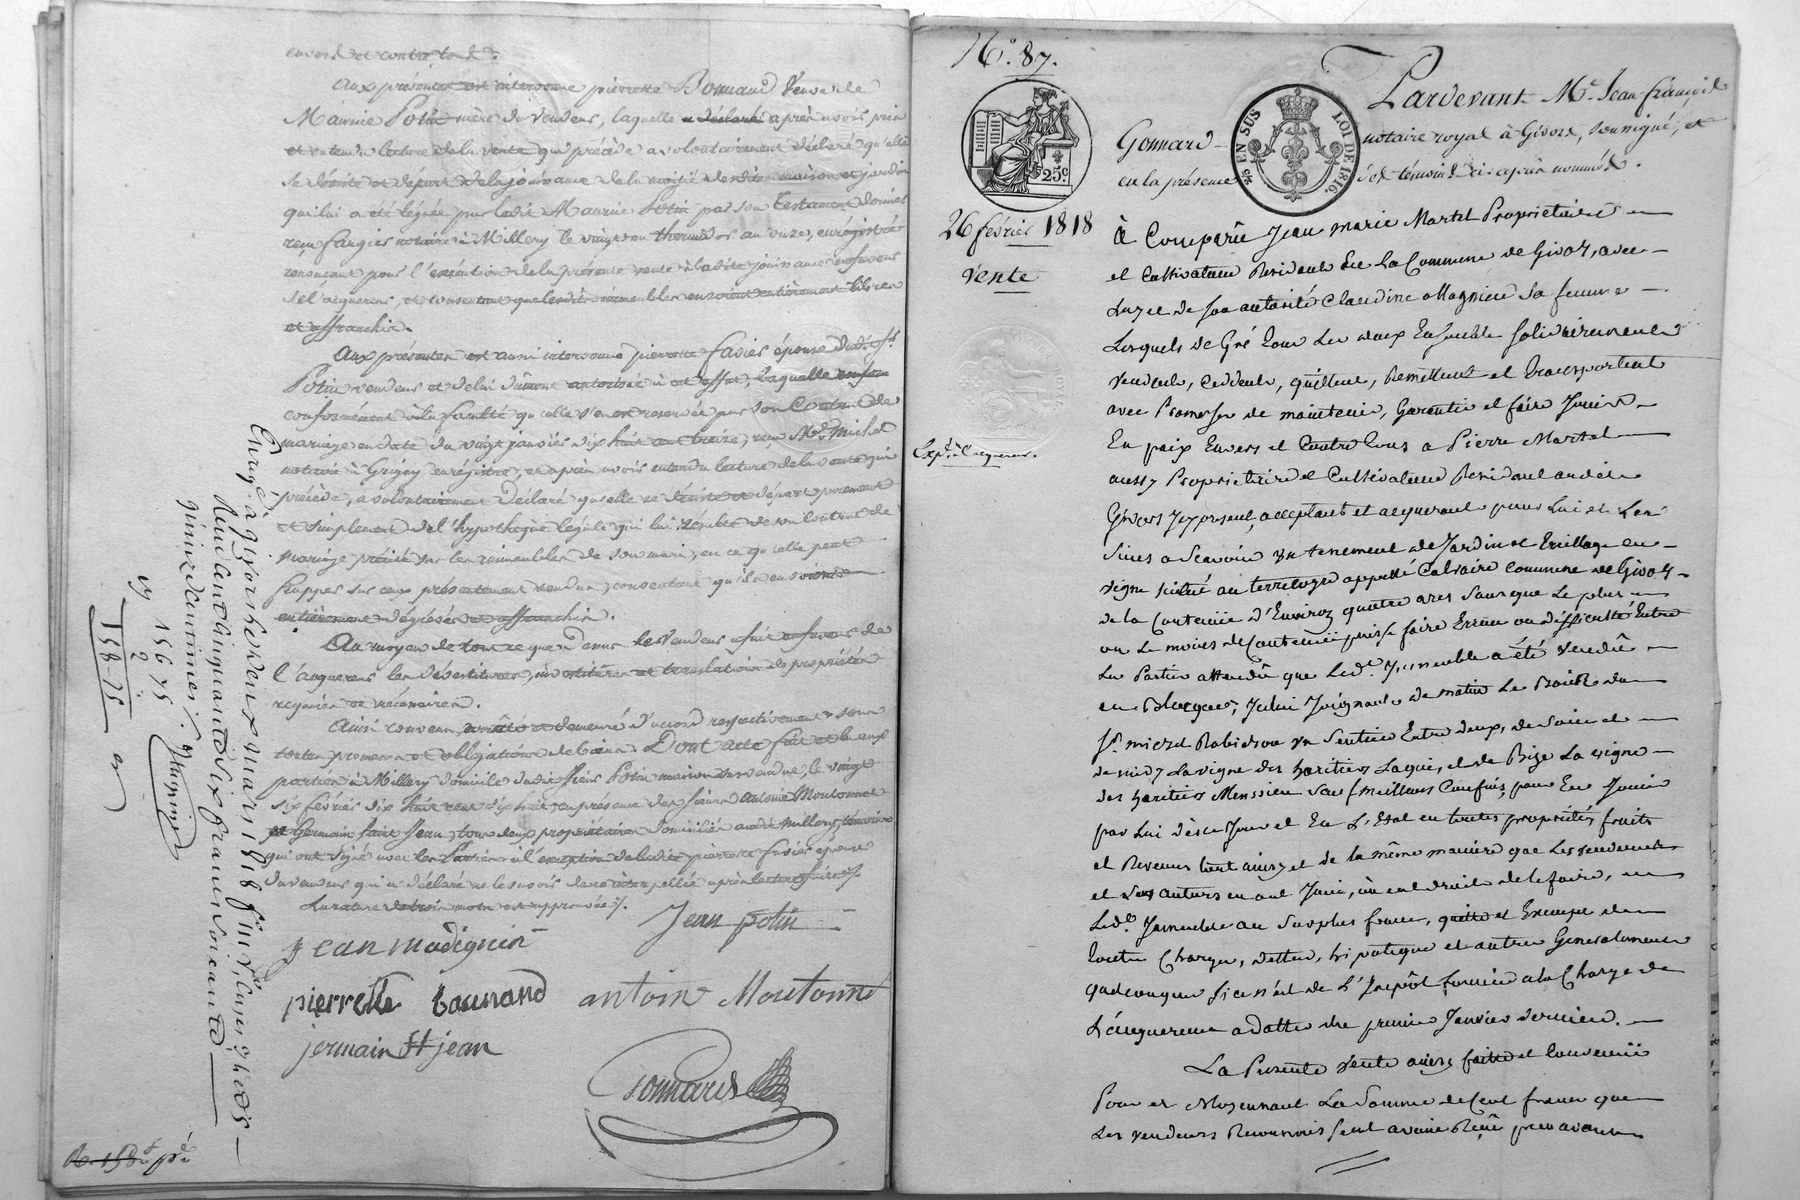 envers et contre tous.
Aux présentes est intervenue pierrette Bonnand Veuve de
Maurice Potin mère du vendeur, laquelle a déclaré après avoir pris
et entendu lecture de la vente qui précède a volontairement déclaré qu'elle
se désiste et départ de la jouissance de la moitié desdits maison et jardin
qui lui a été léguée par ledit Maurice Potin par son testament
notaire à Millery le vingt un thermidor an onze, enregistré
renonçant pour l'exécution de la présente vente à ladite jouissance en faveur
de l'acquéreur, et consentant que lesdits immeubles en soient entièrement libres
et affranchis.
Aux présentes est aussi intervenue pierrette favier épouse dudit Sr.
Potin vendeur et de lui dûment autorisée à cet effet, laquelle
conformément à la faculté qu'elle s'en est réservée par son Contrat de
mariage en date du vingt janvier dix huit cent treize, reçu Me. Michel
notaire à Grigny enregistré, et après avoir entendu lecture de la vente qui
précède, a volontairement Déclaré qu'elle se désiste et départ purement
et simplement de l'hypothèque légale qui lui résulte de son Contrat de
mariage précité sur les immeubles de son mari, en ce qu'elle peut
frapper sur ceux présentement vendus, consentant qu'ils en soient
entièrement dégrévés et affranchis.
Au moyen de tout ce que dessus le Vendeur a fait en faveur de
l'acquéreur les dévestitures, investitures et translation de propriété
requises et nécessaires.
Ainsi convenu, arrêté et demeuré d'accord respectivement sous
toutes promesses et obligations de biens. Dont acte fait et lu aux
parties à Millery domicile dudit Sieur Potin maison vendue, le vingt
six février dix huit cent dix huit, en présence des sieurs Antoine Moutonnet
et Germain Saint Jean, tous deux propriétaires domiciliés audit Millery, témoins
qui ont signé avec les Parties à l'exception de ladite pierrette favier épouse
du vendeur qui a déclaré ne le savoir de ce interpellée après lecture faite
La rature de trois mots est approuvée
Jean potin
jean madignin
pierrette bounand antoin Moutonnet
jermain St jean
Gonnard
Enregé. à givors le deux mars 1818 fo.
Reçu cent cinquante six francs soixante
quinze centimes
156 75
158-75
No. 87.
25c
45 EN SUS
LOI DE 1816.
26 février 1818
Vente
Expé. à l'acquéreur.
Pardevant Me. Jean françois
Gonnard notaire royal à Givors, soussigné, et
en la présence des témoins ci-après nommés.
à Comparû Jean marie Martel Propriétaire
et Cultivateur Residant sur La Commune de Givors, avec
Luy et de son autorité Claudine Magnien Sa femme
Lesquels de Gré Tous Les deux Ensemble solidairement
vendent, Ceddent, quittent, Remettent et transportent
avec Promesse de maintenir, Garentir et faire Jouir
En paix Envers et Contre tous a Pierre Martel
aussy Propriétaire et Cultivateur Residant audit
Givors Jcy present, acceptant et acquerant pour Lui et Les
Siens a Scavoir un tenement de Jardin et treillage en
vigne scitué au territoire appellé Calvaire Commune de Givors
de la Contenüe d'Environ quatre ares Sans que Le plus
ou Le moins de Contenüe puisse faire Erreur ou difficulté Entre
Les Parties attendû que Ledt. Jmmeuble a été vendû
en bloc, Jcelui Joignant de matin Le Broitteau du
Sr. michel Robichon un Sentier Entre deux, de Soir et
de midy La vigne des heritiers Laqui, et de Bize La vigne
des heritiers Meussieu Sauf meilleurs Confins, pour En Jouir
par Lui dèsce Jour et En L'Etat en toutes propriétés fruits
et Revenus tout ainsy et de la même maniere que Les vendeurs
et Leurs auteurs en ont Joui, ou eu droit de le faire,
Ledt. Jmmeuble au Surplus franc, quitte et Exempt de
Toutes Charges, dettes, hipotèques et autres Generalement
quelconques si ce n'est de L'Jmpôt foncier a la Charge de
L'acquereur a datter du premier Janvier dernier.
La Presente vente ainsy faitte et Convenüe
Pour et Moyennant La Somme de Cent francs que
Les vendeurs Reconnoissent avoir Reçue